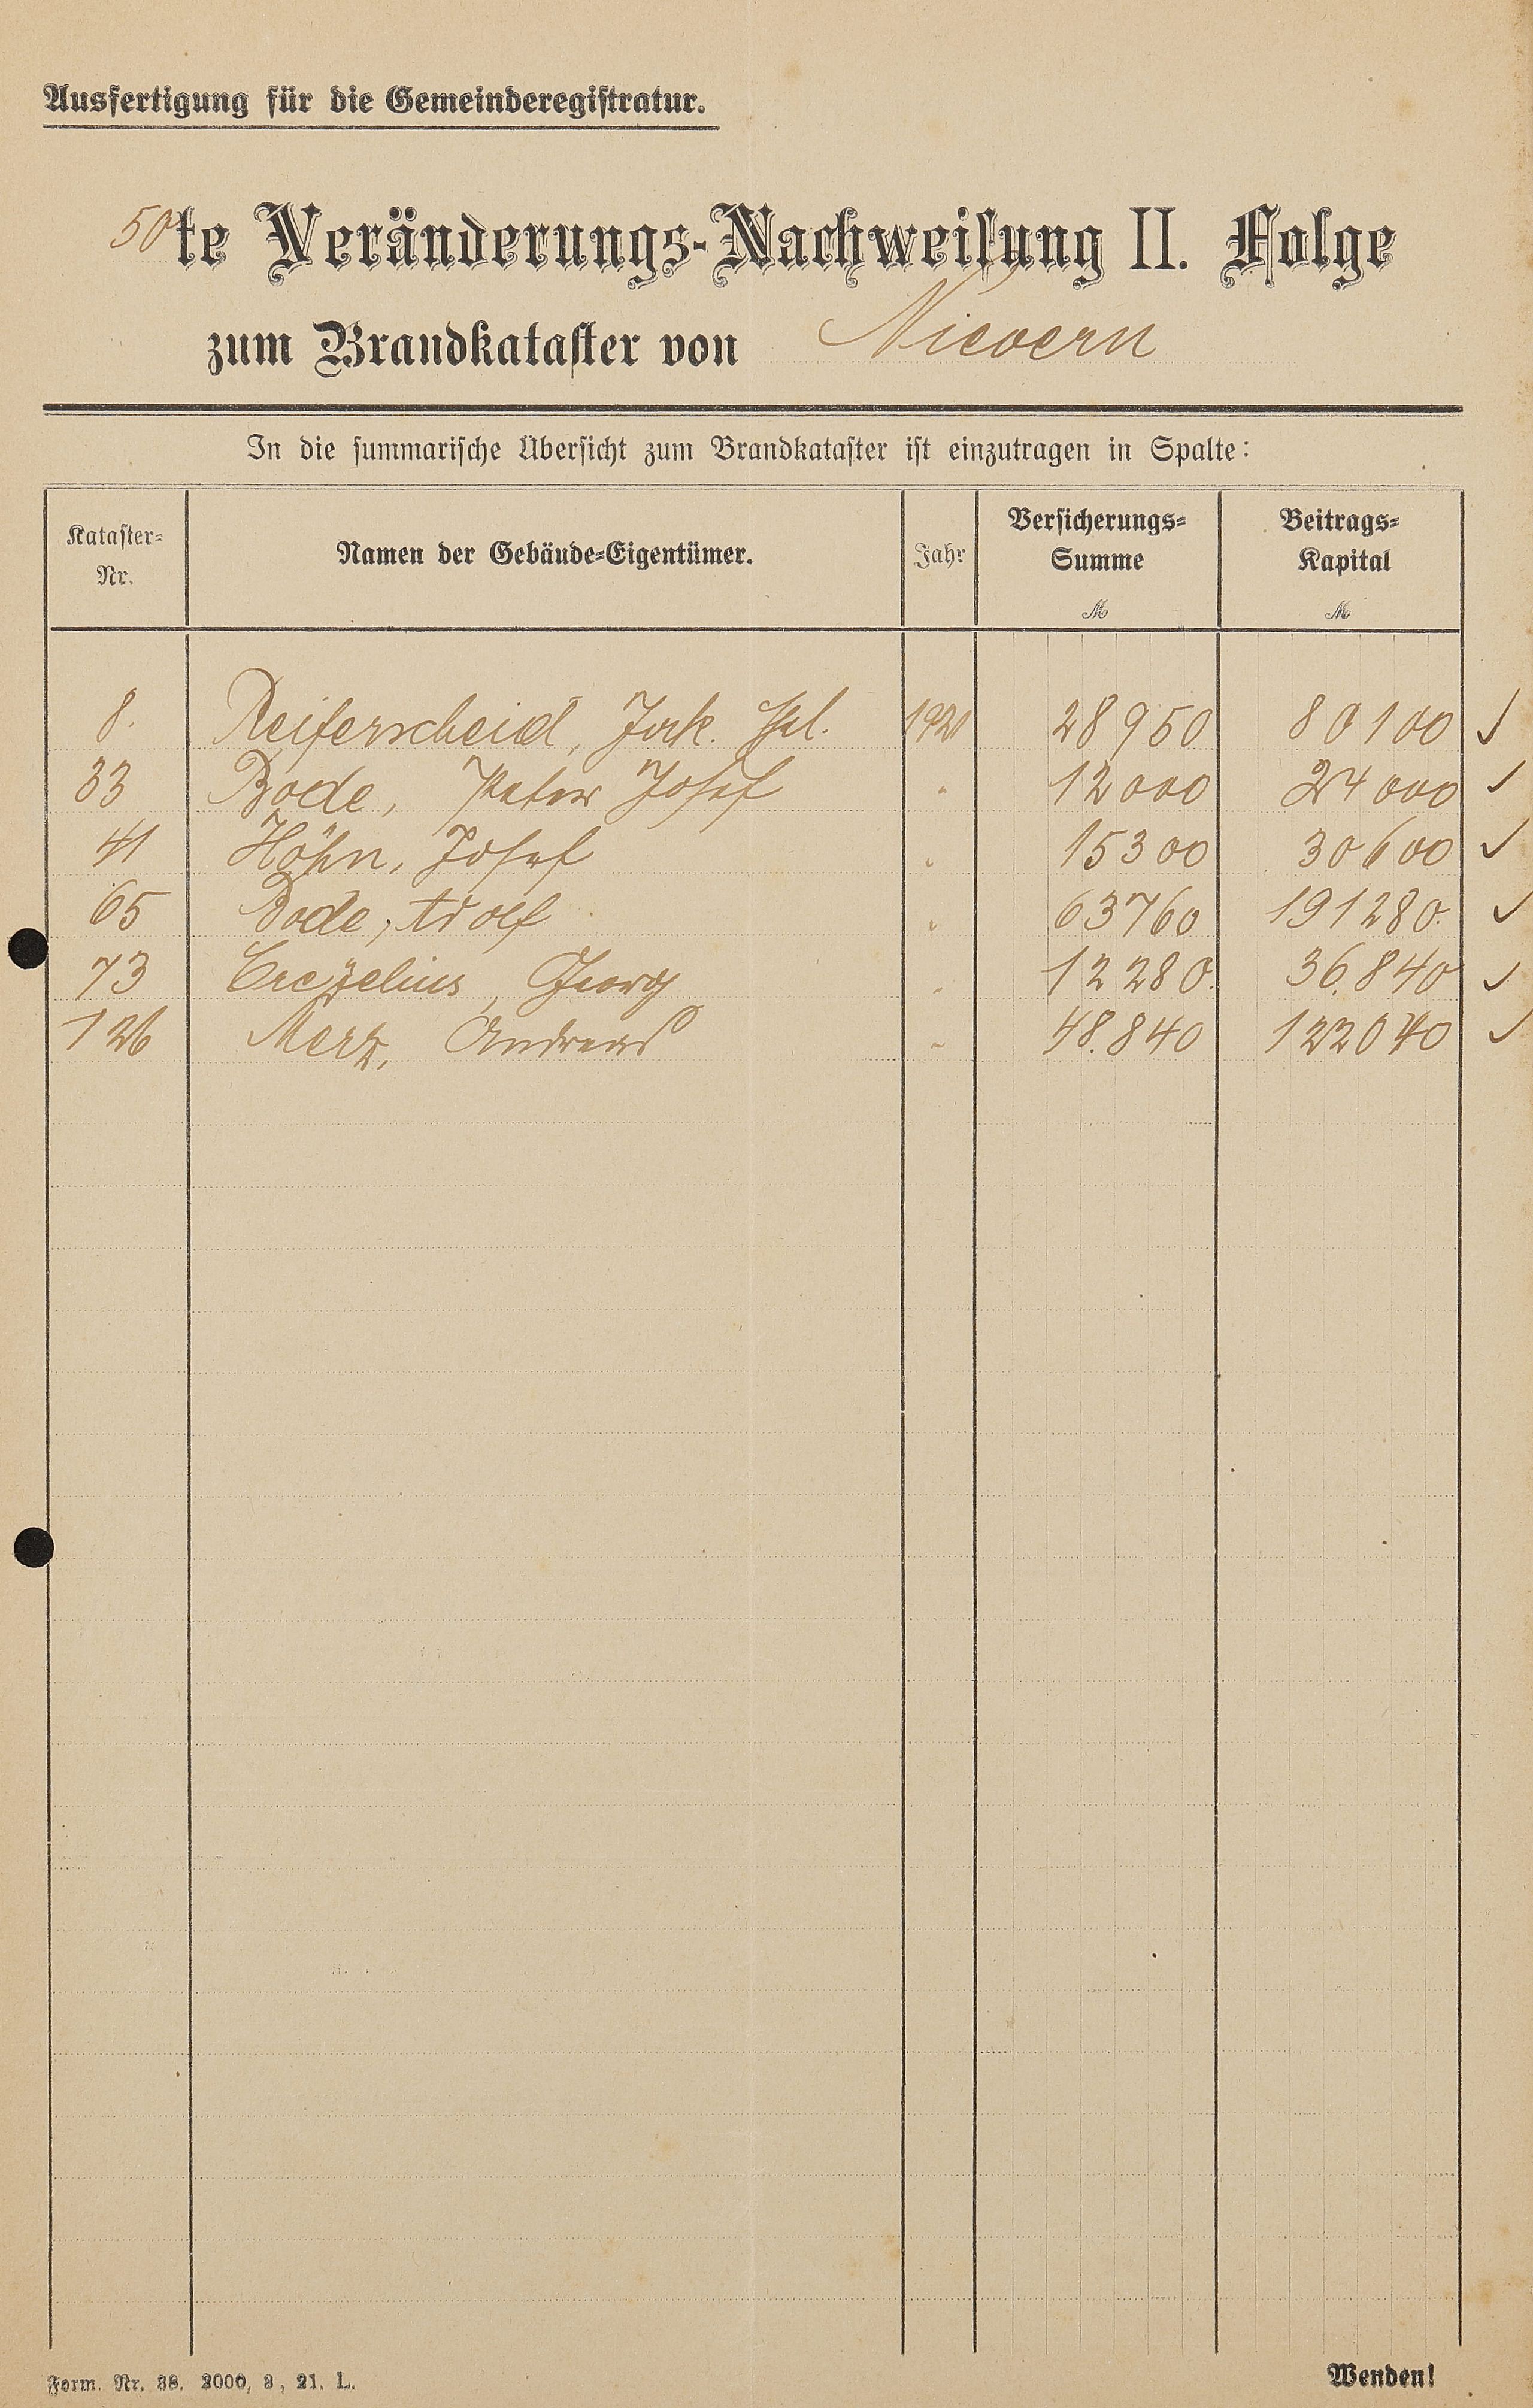 Ausfertigung für die Gemeinderegistratur.
50te Veränderungs-Nachweisung II. Folge
zum Brandkataster von Nievern
In die summarische Übersicht zum Brandkataster ist einzutragen in Spalte:
Kataster-Nr. Namen der Gebäude-Eigentümer. Jahr Versicherungs-Summe M Beitrags-Kapital M
8. Reiferscheid, Jak. 1921 28950 80100 ✓
33 Bode, Peter Josef " 12000 24000 ✓
41 Höhn, Josef " 15300 30600 ✓
65 Bode, Adolf " 63760 191280. ✓
73 Georg " 12280. 36.840 ✓
126 Merz, Andreas " 48.840 122040 ✓
Form. Nr. 38. 2000, 3, 21. L.
Wenden!